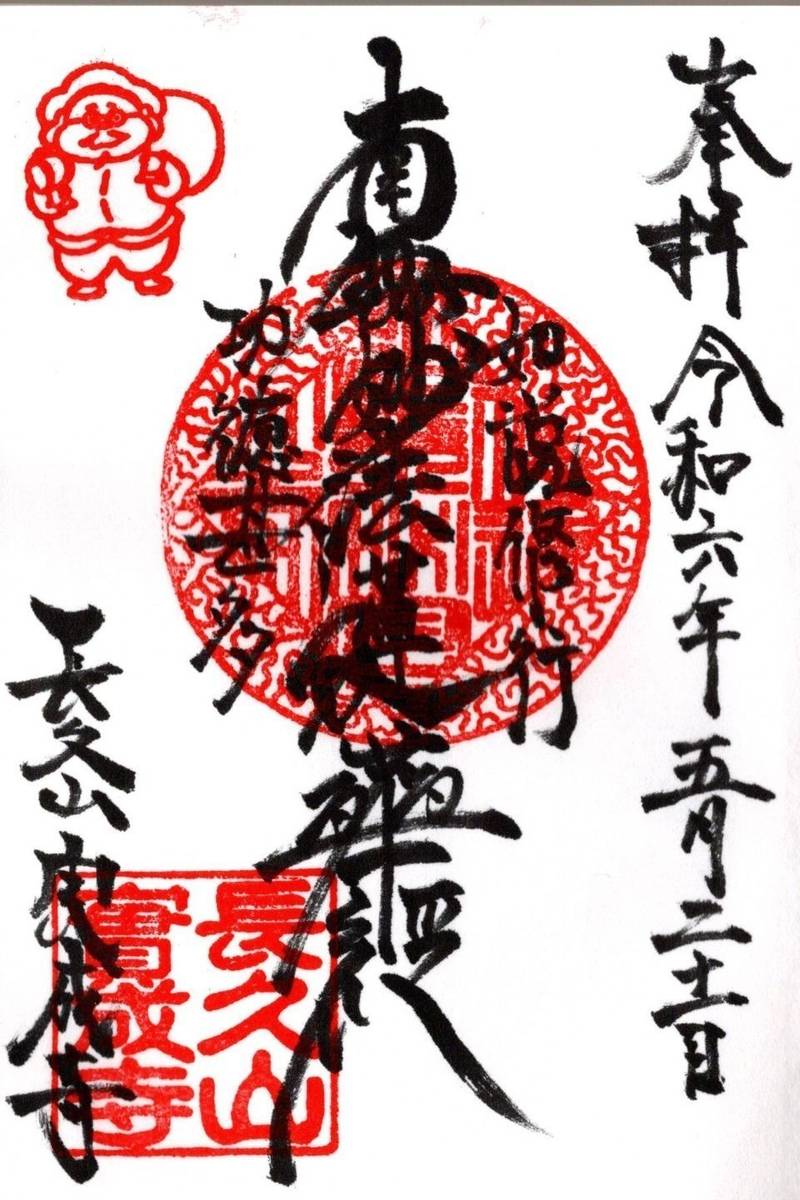 奉拝 令和六年五月二十一日
如説修行
南無妙法蓮華経
功徳甚多
長久山 実成寺
長久山
實成寺